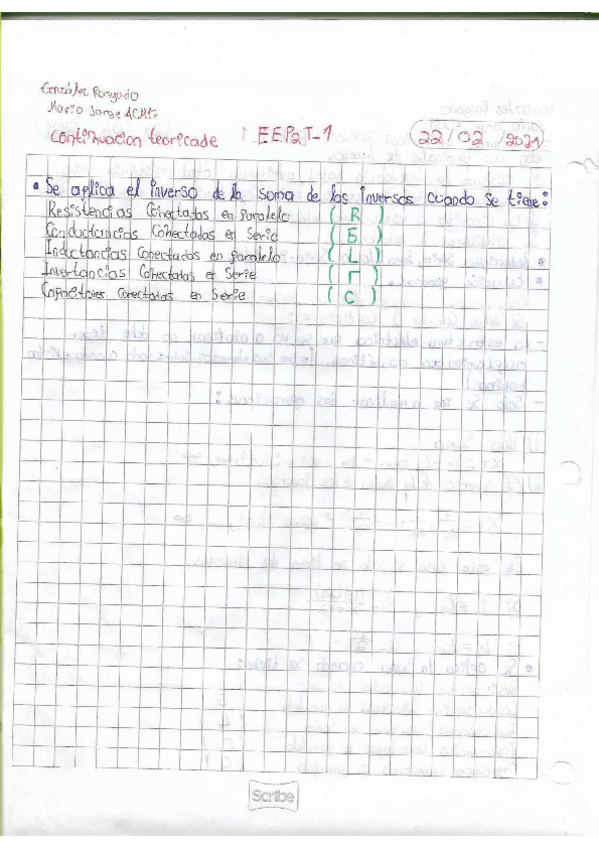 González Rosgado
Mario Jorge 4CM17
Continuacion teorica de EEP2T-1 22/02/2021
• Se aplica el inverso de la suma de los Inversos cuando se tiene:
Resistencias Conectadas en paralelo (R)
Conductancias Conectadas en Serie (E)
Inductancias Conectadas en paralelo (L)
Invertancias Conectadas en Serie (Γ)
Capacitores Conectadas en Serie (C)
Scribe